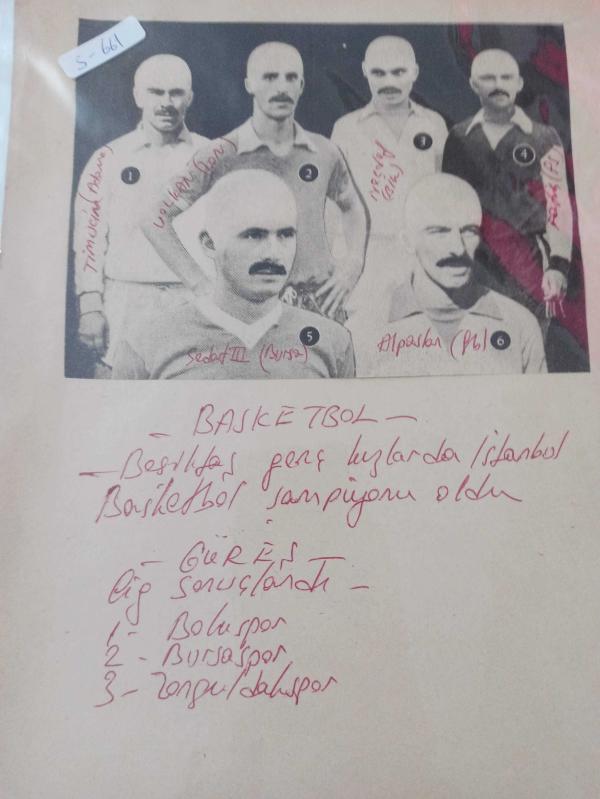 S-661
1
2
3
4
TİMUÇİN (Adana)
VOLKAN
5
6
Sedat III (Bursa)
Alpaslan (Fb)
- BASKETBOL -
- Beşiktaş genç kızlarda İstanbul
Basketbol şampiyonu oldu
- GÜREŞ -
Lig sonuçlandı -
1- Boluspor
2- Bursaspor
3- Zonguldakspor